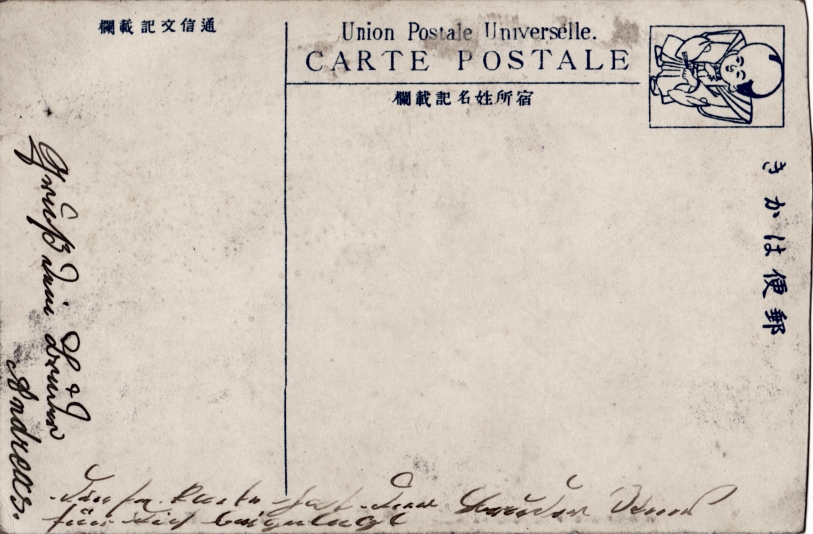 通信文記載欄
Union Postale Universelle.
CARTE POSTALE
宿所姓名記載欄
郵便はかき
Gruß dein & Bruder
Andreas.
Diese Karte hat dein Bruder
für dich beigelegt